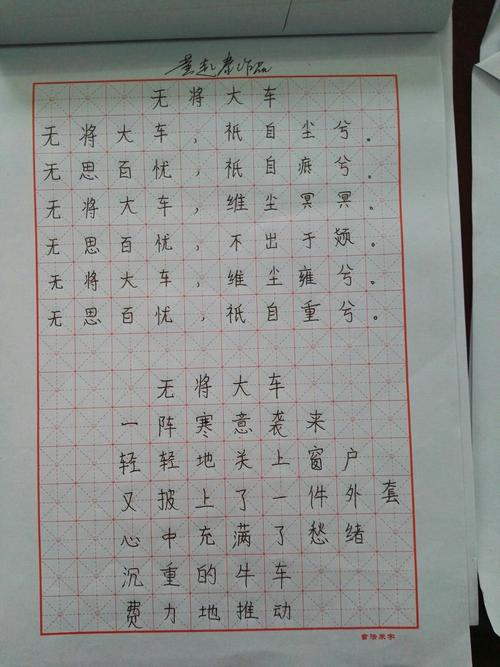 黄起寨作品
无将大车
无将大车，祇自尘兮。
无思百忧，祇自疷兮。
无将大车，维尘冥冥。
无思百忧，不出于颎。
无将大车，维尘雍兮。
无思百忧，祇自重兮。
无将大车
一阵寒意袭来
轻轻地关上窗户
又披上了一件外套
心中充满了愁绪
沉重的牛车
费力地推动